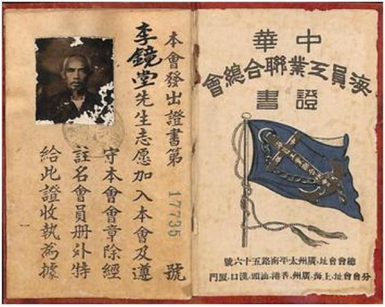 中華
海員工業聯合總會
證書
總會會址．廣州太平南路五十六號
分會會址．上海．廣州．香港．汕頭．漢口．厦門
本會發出證書第 17735 號
李鏡堂先生志愿加入本會及遵
守本會會章除經
註名會員册外特
給此證收執為據